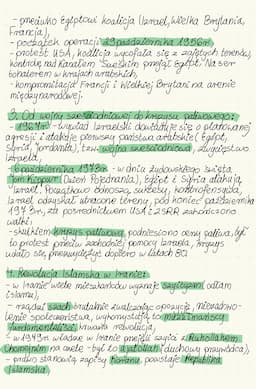 - przeciwko Egiptowi koalicja (Izrael, Wielka Brytania,
Francja),
- początek operacji 29 października 1956r.
- protest USA, koalicja wycofała się z zajętych terenów,
kontrolę nad Kanałem Sueskim przejął Egipt. Naser
bohaterem w krajach arabskich,
- kompromitacja Francji i Wielkiej Brytanii na arenie
międzynarodowej.
3. Od wojny sześciodniowej do kryzysu paliwowego:
- 1967r. - wywiad Izraelski dowiaduje się o planowanej
agresji i atakuje pierwszy państwa arabskie (Egipt,
Syria, Jordania), tzw. wojna sześciodniowa, zwycięstwo
Izraela,
- 6 października 1973r. - w dniu żydowskiego święta
Jom Kippur (Dzień Pojednania), Egipt i Syria atakują
Izrael. Początkowo odnoszą sukcesy, kontrofensywa,
Izrael odzyskał utracone tereny, pod koniec października
1973r., za pośrednictwem USA i ZSRR zakończono
walki.
- skutkiem kryzys paliwowy, podniesiono ceny paliwa, był
to protest przeciw zachodniej pomocy Izraela, kryzys
udało się przezwyciężyć dopiero w latach 80.
4. Rewolucja Islamska w Iranie:
- w Iranie wiele mieszkańców wyznaje szyityzm (odłam
islamu),
- rządził szach brutalnie zwalczając opozycję, niezadowo-
lenie społeczeństwa, wykorzystują to muzułmańscy
fundamentaliści, krwawa rewolucja,
- w 1979r. władzę w Iranie przejęli szyici z Ruhollahem
Chomejnim na czele - był to ajatollah (duchowy przywódca),
- prawo stanowią zapisy Koranu, powstaje Republika
Islamska.